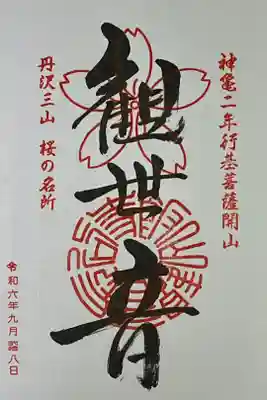 神亀二年行基菩薩開山
観世音
丹沢三山 桜の名所
令和六年九月 八日